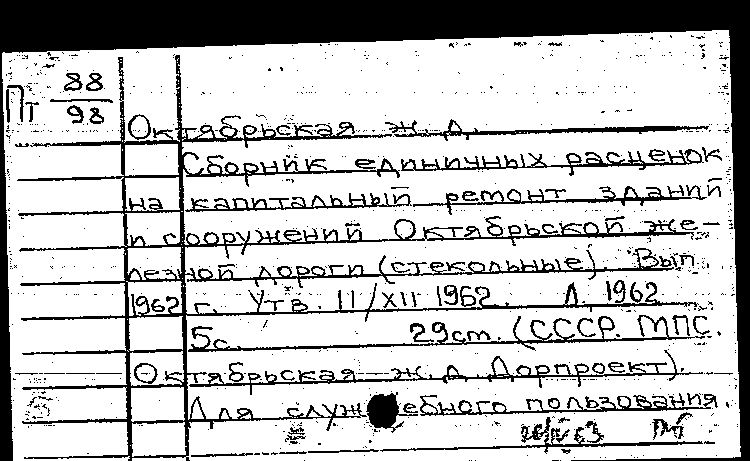 Пт 88/98
Октябрьская ж. д.
Сборник единичных расценок
на капитальный ремонт зданий
и сооружений Октябрьской же-
лезной дороги (стекольные). Вып.
1962 г. Утв. 11/XII 1962. Л. 1962
5с. 29см. (СССР. МПС.
Октябрьская ж. д. Дорпроект).
Для служебного пользования.
63